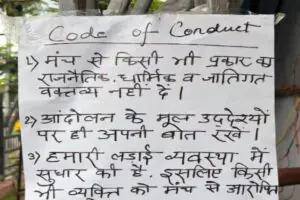 Code of Conduct
1) मंच से किसी भी प्रकार का
राजनैतिक, धार्मिक व जातिगत
वक्तव्य नहीं दें ।
2) आंदोलन के मूल उददेश्यों
पर ही अपनी बात रखें ।
3) हमारी लडाई व्यवस्था में
सुधार की है. इसलिए किसी
भी व्यक्ति को मंच से आरोपित